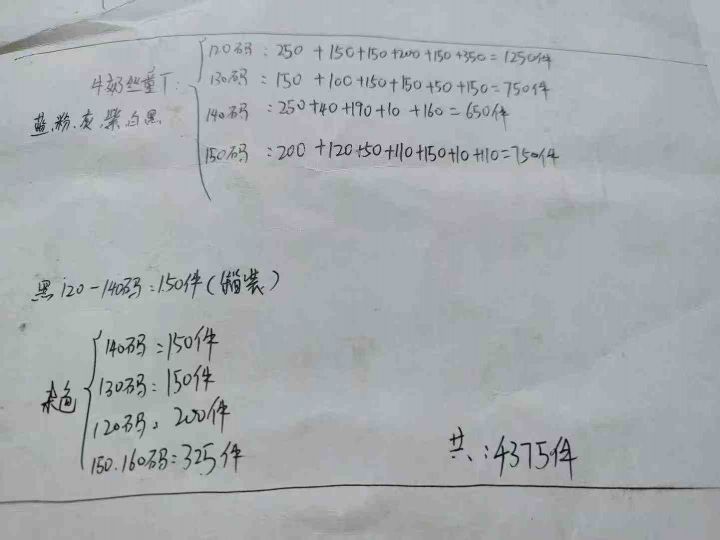 牛奶丝童T:
蓝,粉,灰,紫,白黑
120码:250+150+150+200+150+350=1250件
130码:150+100+150+150+50+150=750件
140码:250+40+190+10+160=650件
150码:200+120+50+110+150+10+110=750件
黑120-140码:150件(箱装)
杂色
140码:150件
130码:150件
120码:200件
150.160码:325件
共:4375件